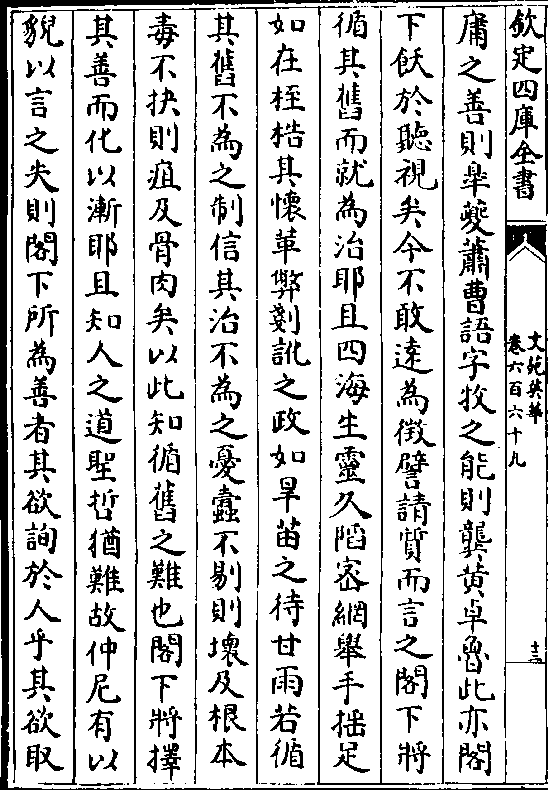 欽定四庫全書
文苑英華
卷六百六十九
十三
庸之善則臯夔蕭曹語字牧之能則龔黄卓魯此亦閣
下飫於聽視矣今不敢逺為徴譬請質而言之閣下將
循其舊而就為治耶且四海生靈久陷宻網舉手揺足
如在桎梏其懐革弊剗訛之政如旱苗之待甘雨若循
其舊不為之制信其治不為之憂蠧不剔則壊及根本
毒不抉則疽及骨肉矣以此知循舊之難也閣下將擇
其善而化以漸耶且知人之道聖哲猶難故仲尼有以
貎以言之失則閣下所為善者其欲詢於人乎其欲取